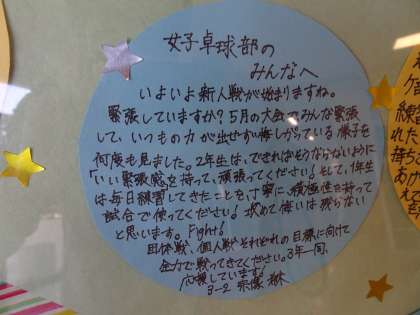 女子卓球部の
みんなへ
いよいよ新人戦が始まりますね。
緊張していますか？5月の大会でみんな緊張
して、いつもの力が出せず悔しがっている様子を
何度も見ました。2年生は、できればそうならないように
「いい緊張感」を持って、頑張ってください！そして、1年生
は毎日練習してきたことを、丁寧に、積極性を持って
試合で使ってください！攻めて悔いは残らない
と思います。Fight！
団体戦、個人戦それぞれの目標に向けて
全力で戦ってきてください。3年一同、
応援しています！
3-2
練習
れた
持ち